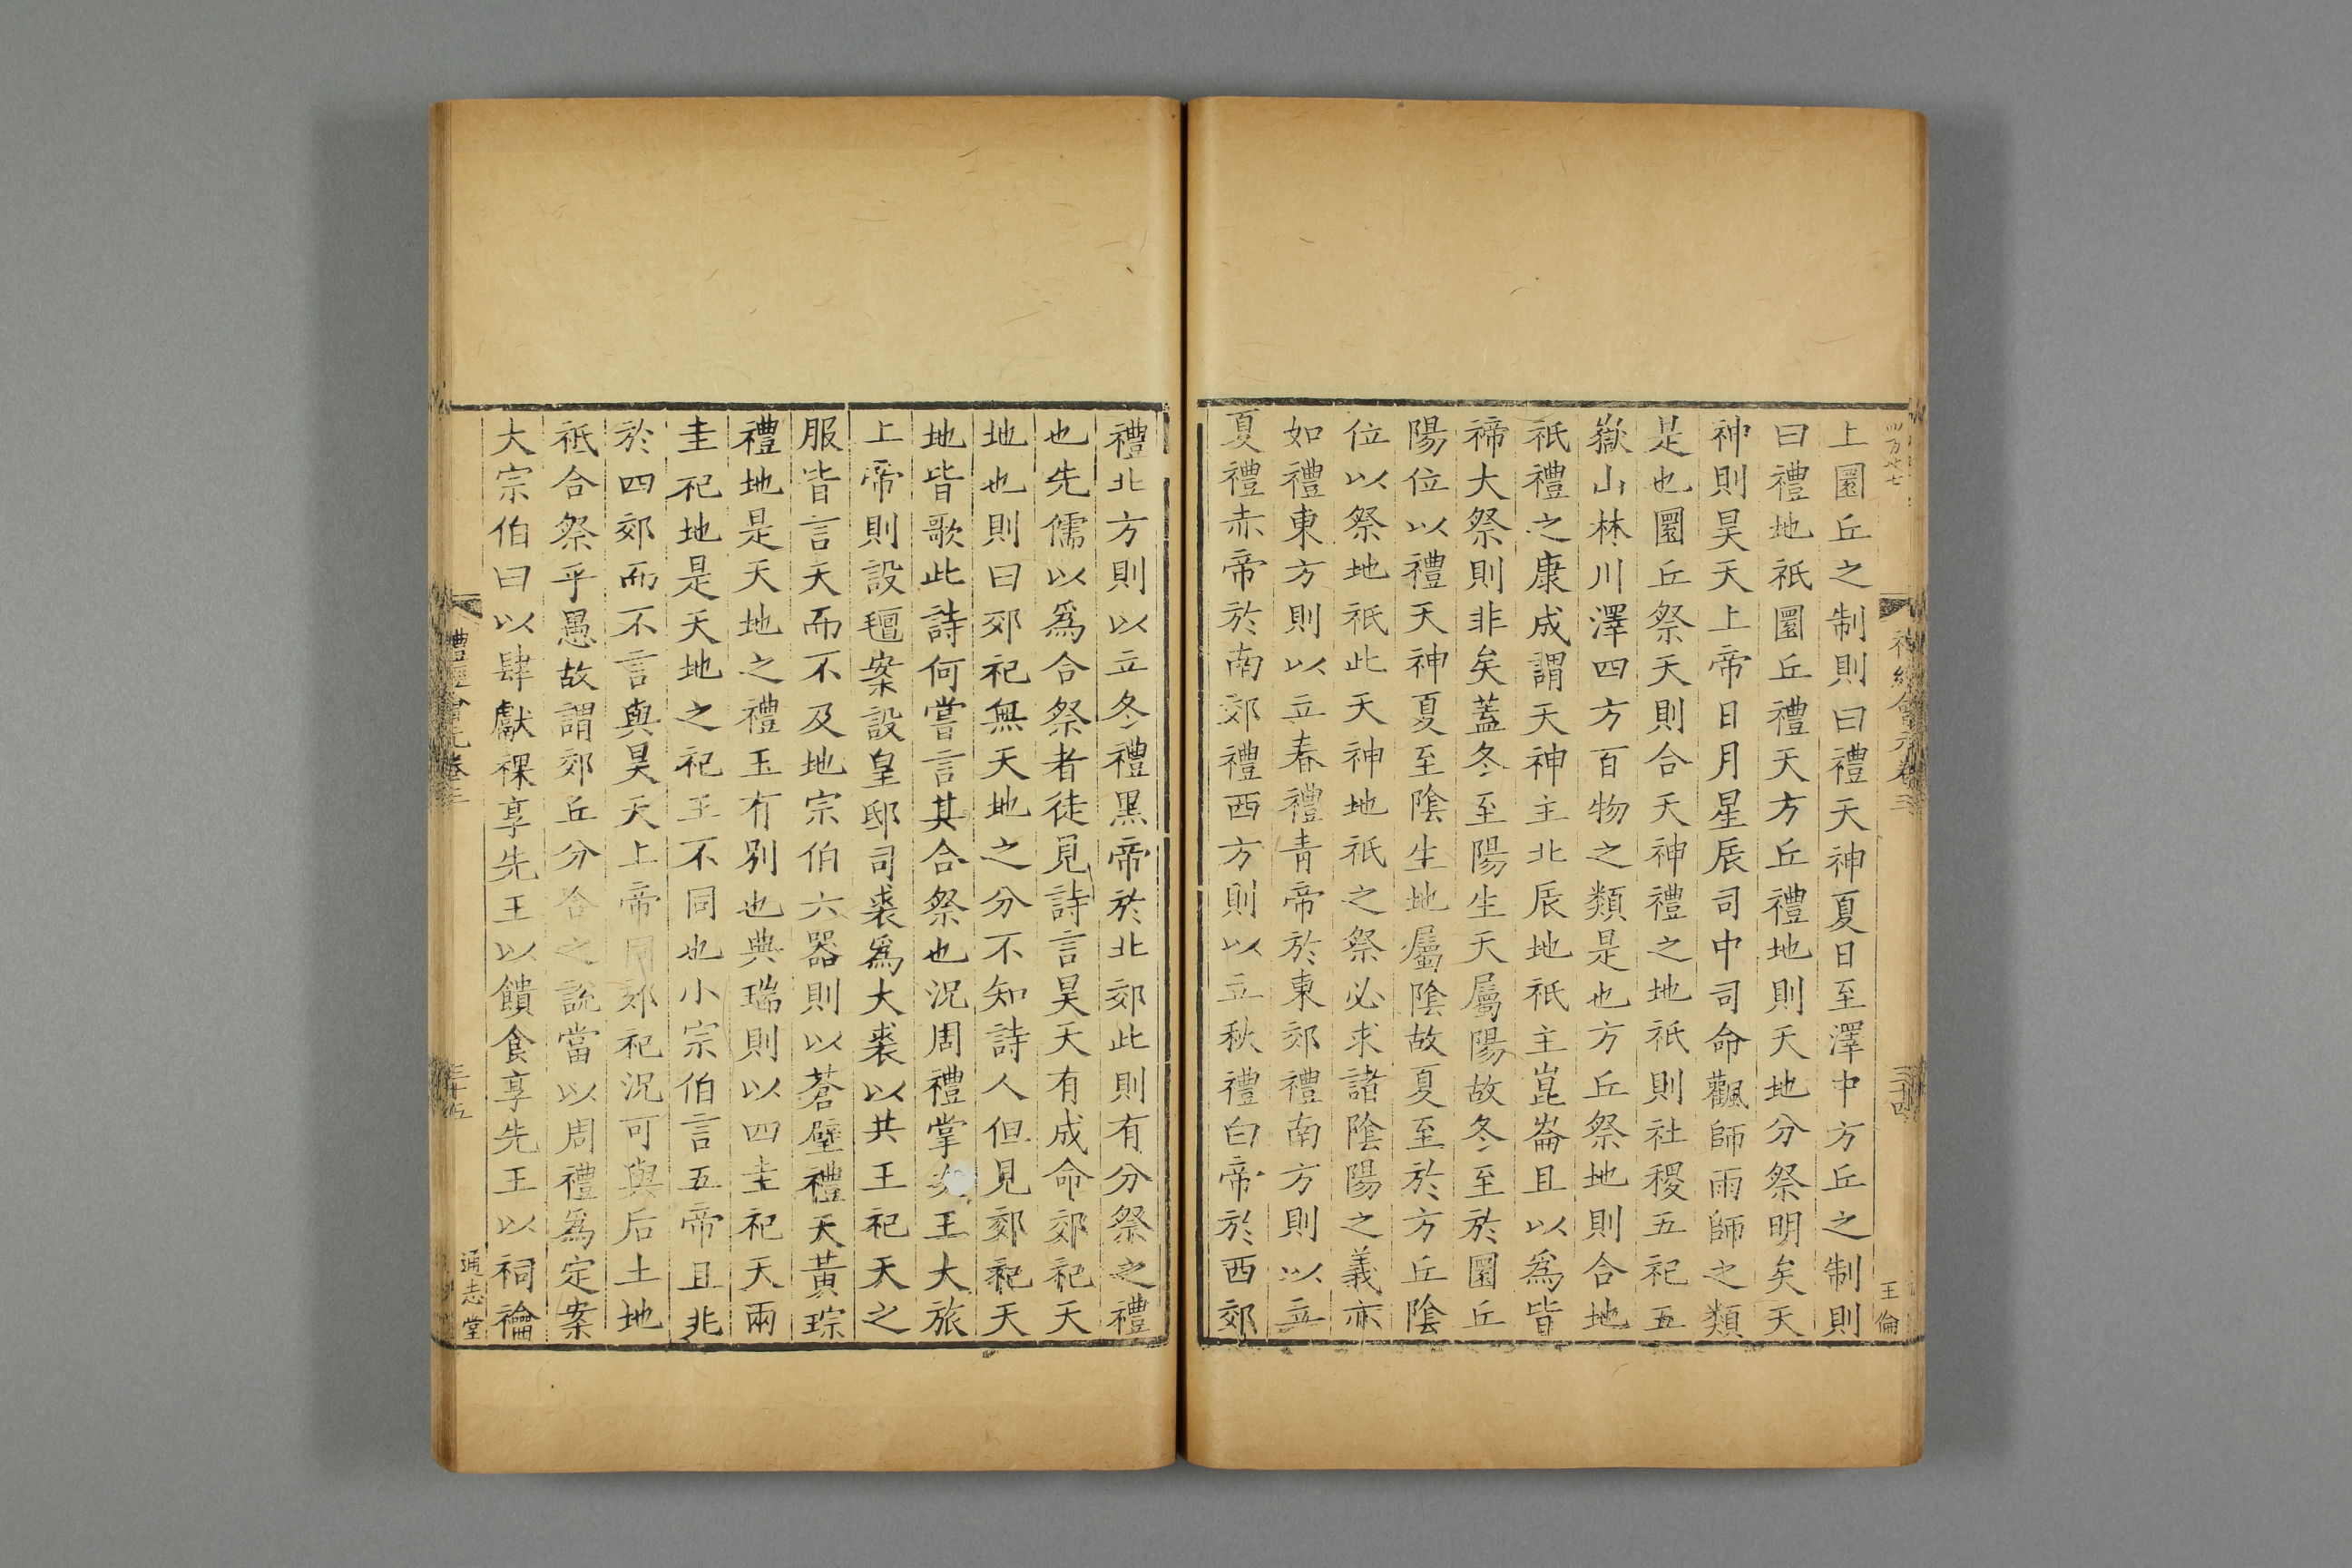 上圜丘之制則曰禮天神夏日至澤中方丘之制則
曰禮地祇圜丘禮天方丘禮地則天地分祭明矣天
神則昊天上帝日月星辰司中司命飌師雨師之類
是也圜丘祭天則合天神禮之地祇則社稷五祀五
嶽山林川澤四方百物之類是也方丘祭地則合地
祇禮之康成謂天神主北辰地祇主崑崙且以爲皆
禘大祭則非矣蓋冬至陽生天屬陽故冬至於圜丘
陽位以禮天神夏至陰生地屬陰故夏至於方丘陰
位以祭地祇此天神地祇之祭必求諸陰陽之義亦
如禮東方則以立春禮青帝於東郊禮南方則以立
夏禮赤帝於南郊禮西方則以立秋禮白帝於西郊
王倫
三十四
禮北方則以立冬禮黑帝於北郊此則有分祭之禮
也先儒以爲合祭者徒見詩言昊天有成命郊祀天
地也則曰郊祀無天地之分不知詩人但見郊祀天
地皆歌此詩何嘗言其合祭也況周禮掌次王大旅
上帝則設氊案設皇邸司裘爲大裘以共王祀天之
服皆言天而不及地宗伯六器則以蒼璧禮天黃琮
禮地是天地之禮玉有別也典瑞則以四圭祀天兩
圭祀地是天地之祀玉不同也小宗伯言五帝且兆
於四郊而不言與昊天上帝同郊祀況可與后土地
祗合祭乎愚故謂郊丘分合之說當以周禮爲定案
大宗伯曰以肆獻祼享先王以饋食享先王以祠禴
禮經會元卷三
三十五
通志堂